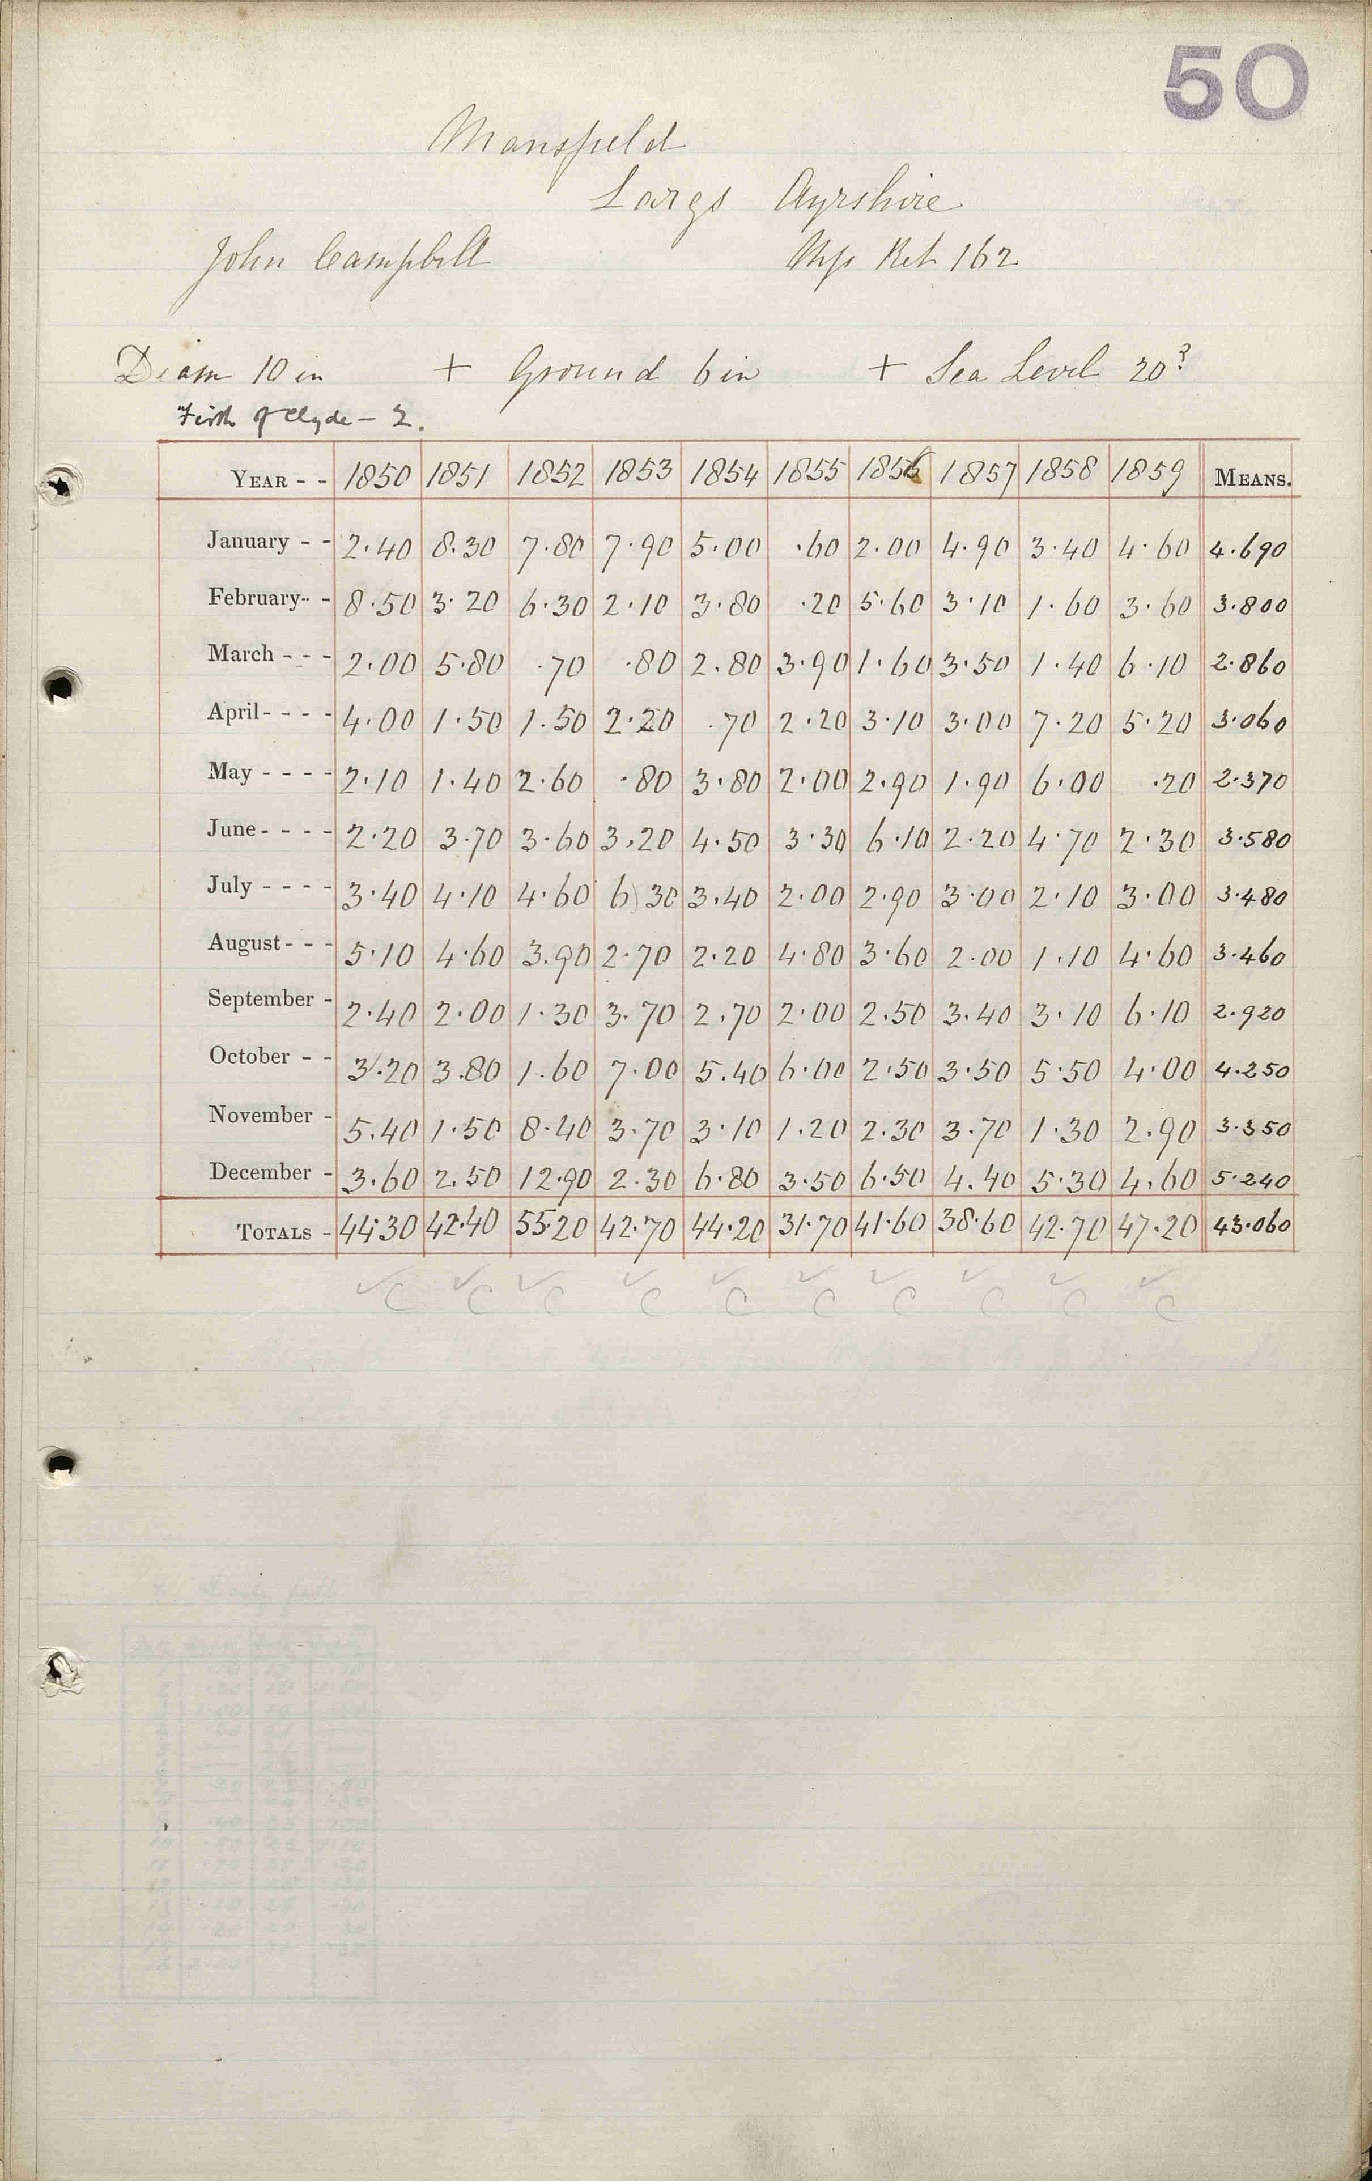 50
Mansfield
Largs Ayrshire
John Campbell Mys Ret 162
Diam 10 in + Ground 6 in + Sea Level 20?
Firth of Clyde – 2.
YEAR - - 1850 1851 1852 1853 1854 1855 1856 1857 1858 1859 MEANS.
January - - 2.40 8.30 7.80 7.90 5.00 .60 2.00 4.90 3.40 4.60 4.690
February - - 8.50 3.20 6.30 2.10 3.80 .20 5.60 3.10 1.60 3.60 3.800
March - - - 2.00 5.80 .70 .80 2.80 3.90 1.60 3.50 1.40 6.10 2.860
April - - - - 4.00 1.50 1.50 2.20 .70 2.20 3.10 3.00 7.20 5.20 3.060
May - - - - 2.10 1.40 2.60 .80 3.80 2.00 2.90 1.90 6.00 .20 2.370
June - - - - 2.20 3.70 3.60 3.20 4.50 3.30 6.10 2.20 4.70 2.30 3.580
July - - - - 3.40 4.10 4.60 6.30 3.40 2.00 2.90 3.00 2.10 3.00 3.480
August - - - 5.10 4.60 3.90 2.70 2.20 4.80 3.60 2.00 1.10 4.60 3.460
September - 2.40 2.00 1.30 3.70 2.70 2.00 2.50 3.40 3.10 6.10 2.920
October - - 3.20 3.80 1.60 7.00 5.40 6.00 2.50 3.50 5.50 4.00 4.250
November - 5.40 1.50 8.40 3.70 3.10 1.20 2.30 3.70 1.30 2.90 3.350
December - 3.60 2.50 12.90 2.30 6.80 3.50 6.50 4.40 5.30 4.60 5.240
TOTALS - 44.30 42.40 55.20 42.70 44.20 31.70 41.60 38.60 42.70 47.20 43.060
✓C ✓C ✓C ✓C ✓C ✓C ✓C ✓C ✓C ✓C